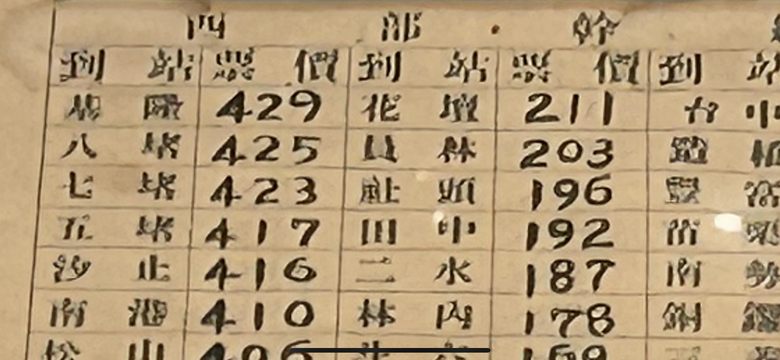 西部幹
到站 票價 到站 票價 到站
基隆 429 花壇 211 台中
八堵 425 員林 203
七堵 423 社頭 196
五堵 417 田中 192
汐止 416 二水 187
南港 410 林內 178
松山 406